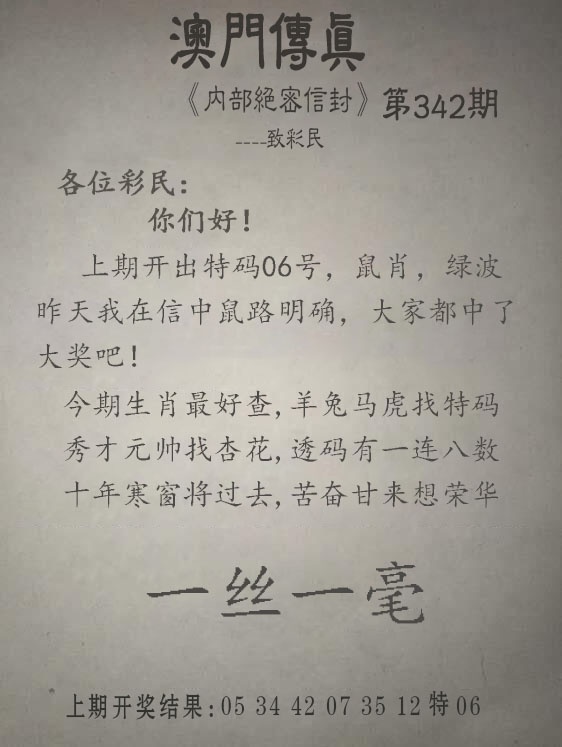 澳門傳真
《内部絕密信封》第342期
----致彩民
各位彩民:
你们好!
上期开出特码06号，鼠肖，绿波
昨天我在信中鼠路明确，大家都中了
大奖吧!
今期生肖最好查,羊兔马虎找特码
秀才元帅找杏花,透码有一连八数
十年寒窗将过去,苦奋甘来想荣华
一丝一毫
上期开奖结果:05 34 42 07 35 12特06